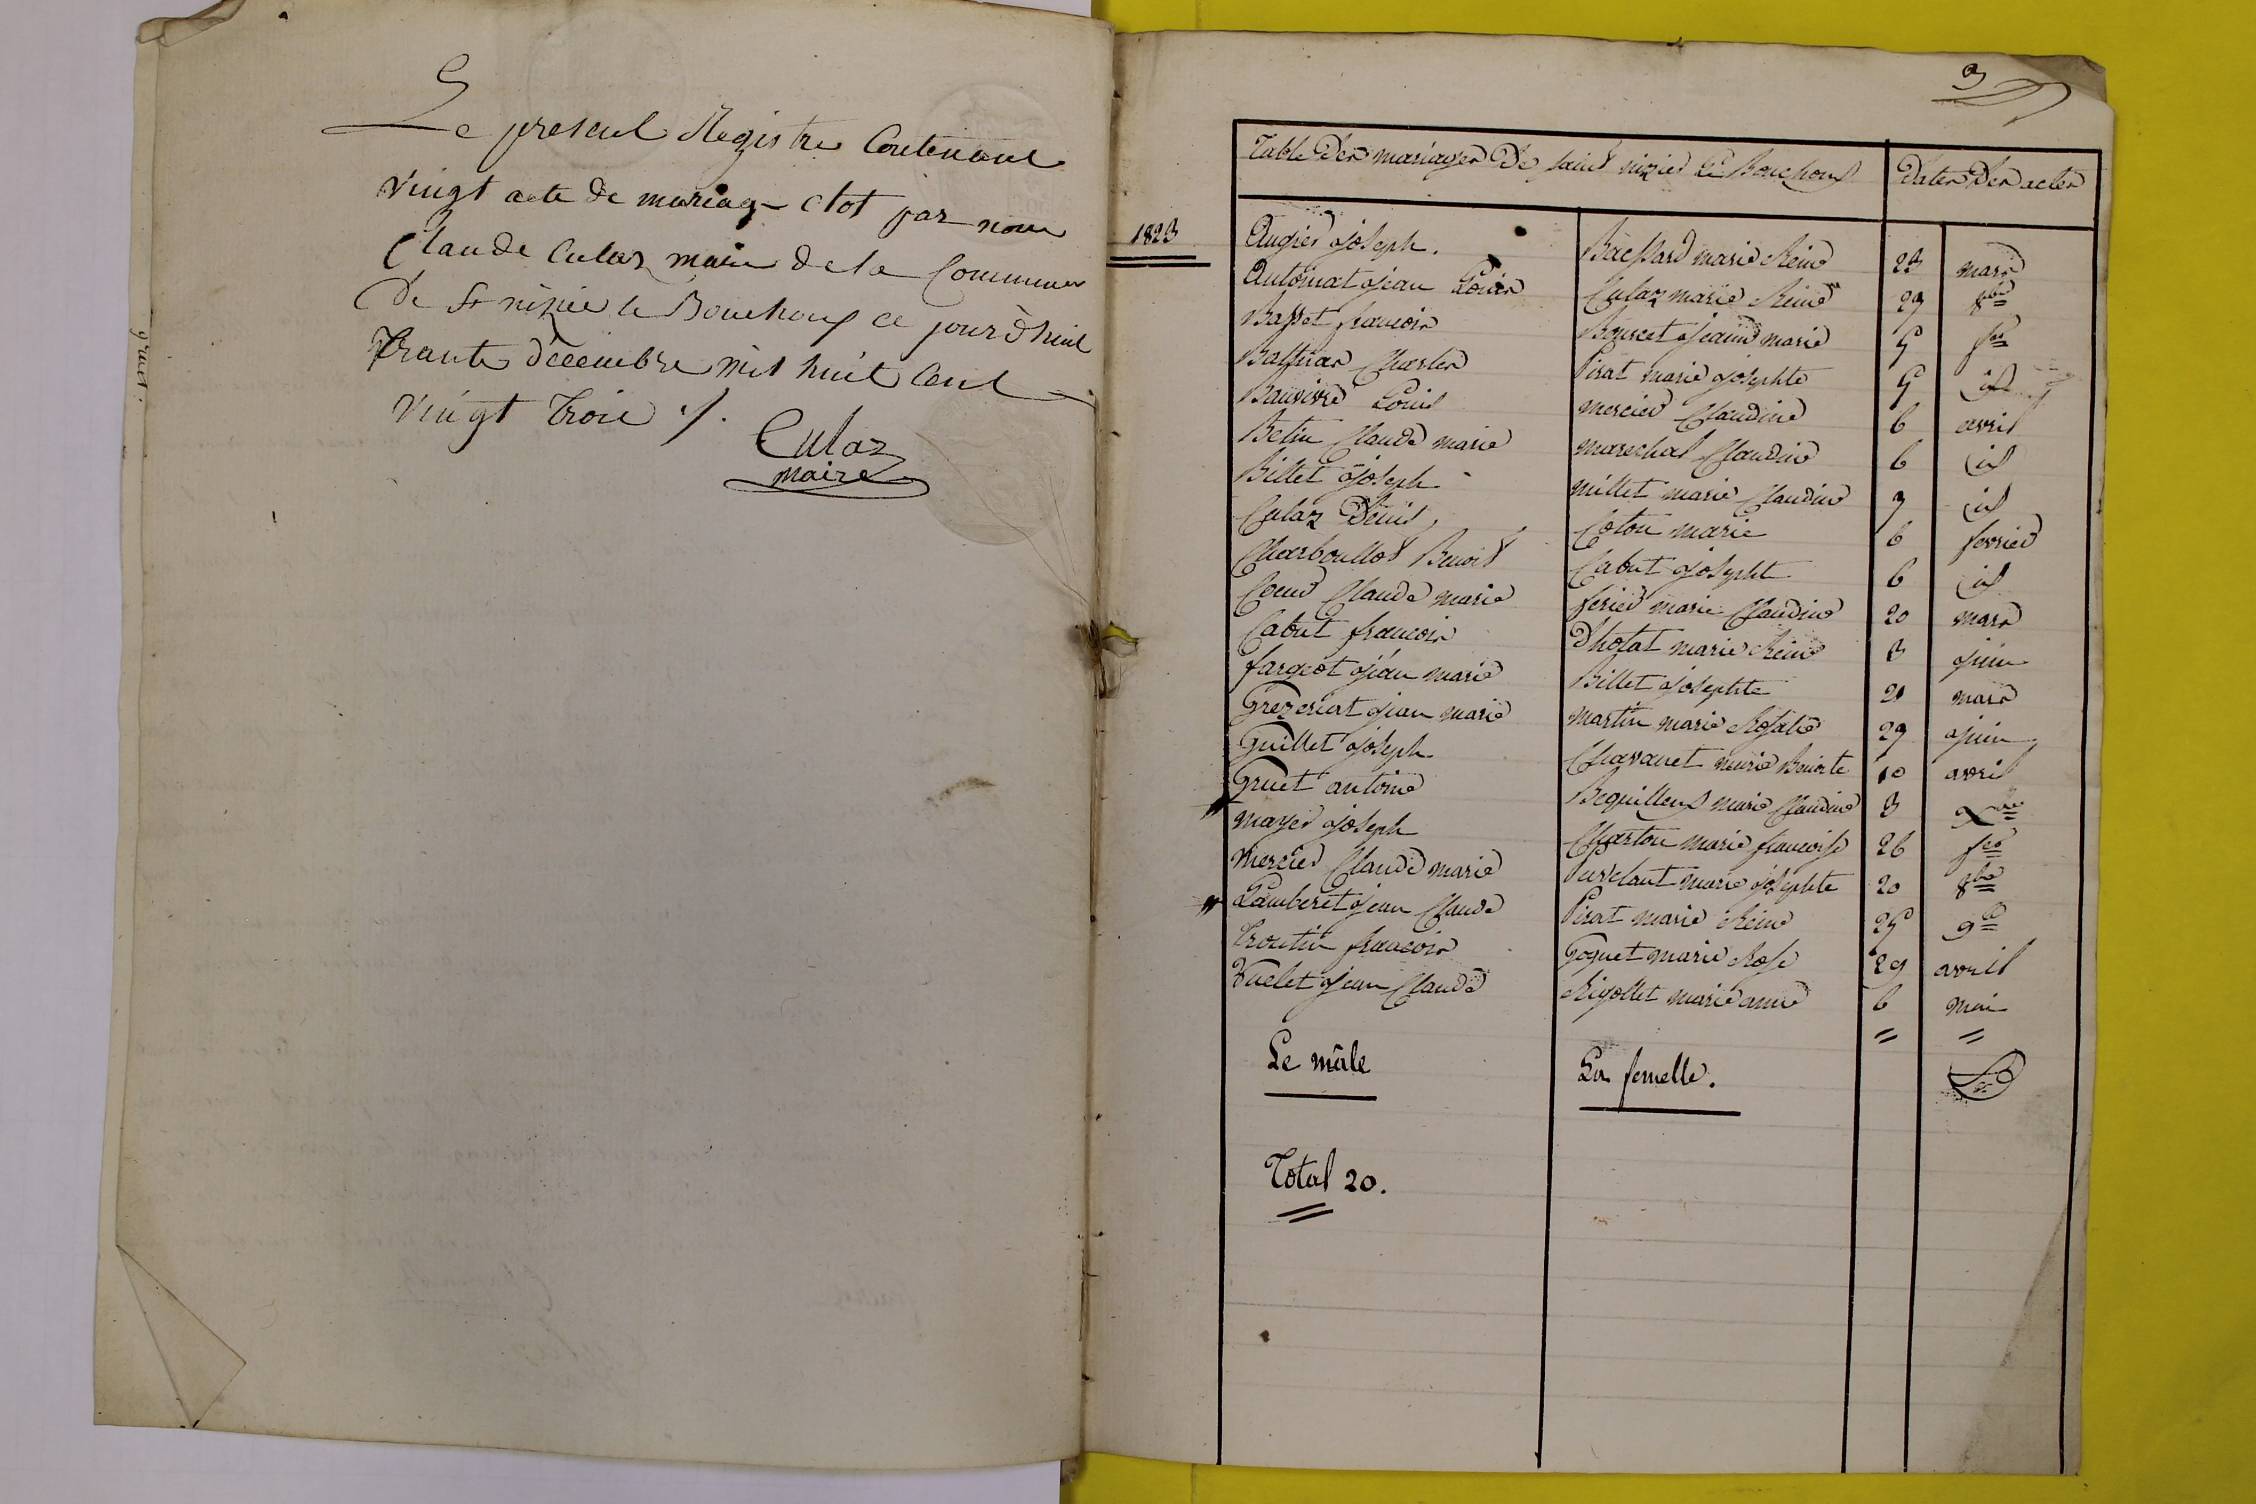 Le present Registre Contenant
vingt acte de mariag clot par nous
Claude Culaz maire de la Commune
de St nizier le Bouchoux ce jour d'huit
trante decembre mil huit Cent
vingt trois ./.
Culaz
maire
3
Table des mariages de saint nizier le Bouchoux Dates des actes
1823 Augier joseph. marie Reine 23 mars
Antoinat jean Louis Culaz marie Reine 29 8bre
Basset francois Bourcet jeanne marie 5
Charles Pirat marie josephte 5 id
Bauvivre Louis mercier Claudine 6 avril
Betin Claude marie marechal Claudine 6 id
Billet joseph millet marie Claudine 9 id
Culaz Denis Coton marie 6 fevrier
Charboullot Benoit Cabut josephte 6 id
Coeur Claude marie ferier marie Claudine 20 mars
Cabut francois Dhotat marie Reine 3 juin
fargeot jean marie Billet josephte 21 mars
Grezeriat jean marie martin marie Rosalie 29 juin
Guillet joseph Chavanet marie Benoite 10 avril
Gruet antoine marie Claudine 3 Xbre
mayer joseph Charton marie francoise 26
mercier Claude marie marie josephte 20 8bre
Lamberet jean Claude Pirat marie Reine 25 9bre
Troutin francois Goguet marie Rose 29 avril
Vuelet jean Claude Rigollet marie anne 6 mai
" "
Le mâle La femelle.
Total 20.